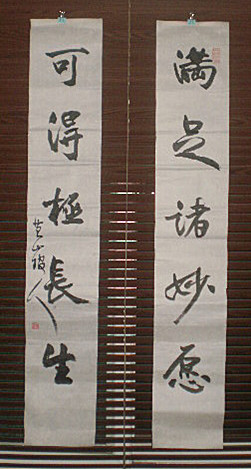 满足诸妙愿
可得极長生